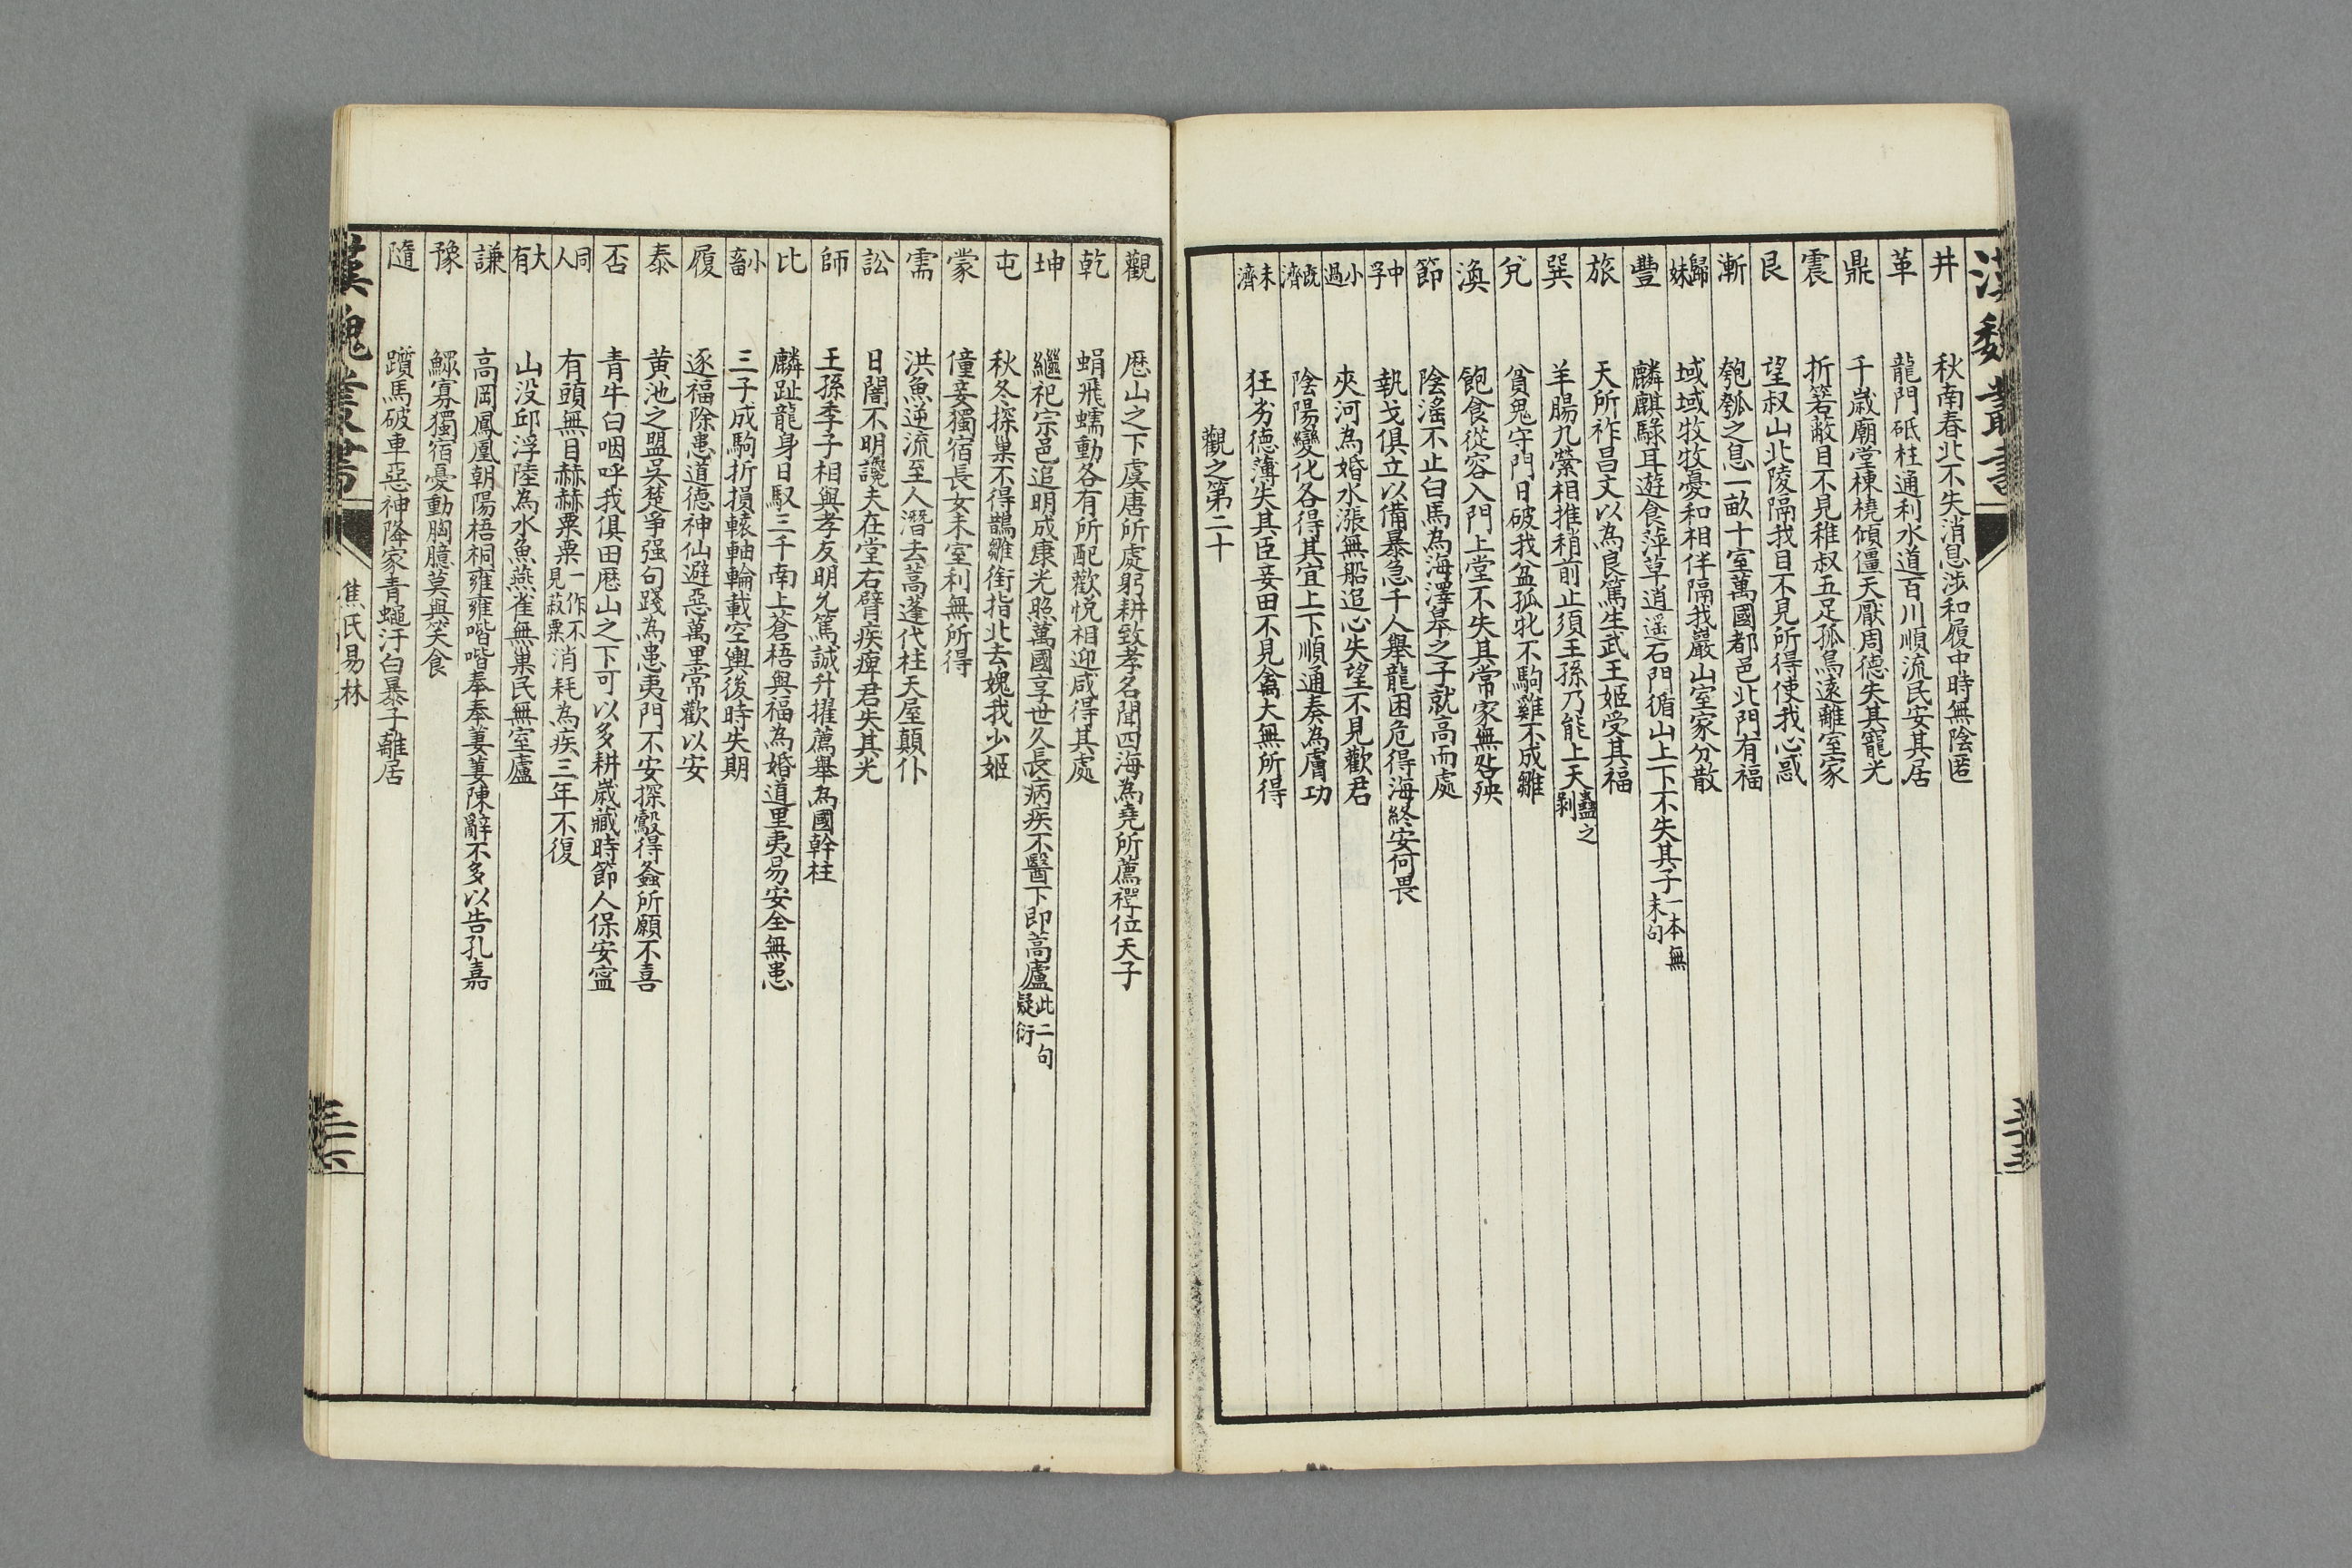 漢魏叢書
井 秋南春北不失消息涉和履中時無陰匿
革 龍門砥柱通利水道百川順流民安其居
鼎 千歲廟堂棟橈傾僵天厭周德失其寵光
震 折若蔽目不見稚叔五足孤鳥遠離室家
艮 望叔山北陵隔我目不見所得使我心惑
漸 匏瓠之息一畝十室萬國都邑北門有福
歸妹 域域牧牧憂和相伴隔我巖山室家分散
豐 麟麒騄耳遊食萍草逍遥石門循山上下不失其子一本無末句
旅 天所祚昌文以為良篤生武王姬受其福
巽 羊腸九縈相推稍前止須王孫乃能上天蠱之剝
兌 貧鬼守門日破我盆孤牝不駒雞不成雛
渙 飽食從容入門上堂不失其常家無咎殃
節 陰淫不止白馬為海澤皋之子就高而處
中孚 執戈俱立以備暴急千人舉龍困危得海終安何畏
小過 夾河為婚水漲無船追心失望不見歡君
既濟 陰陽變化各得其宜上下順通奏為膚功
未濟 狂劣德薄失其臣妾田不見禽犬無所得
觀之第二十
觀 歷山之下虞唐所處躬耕致孝名聞四海為堯所薦禪位天子
乾 蜎飛蠕動各有所配歡悅相迎咸得其處
坤 繼祀宗邑追明成康光照萬國享世久長病疾不醫下即蒿廬此二句疑衍
屯 秋冬探巢不得鵲雛銜指北去媿我少姬
蒙 僮妾獨宿長女未室利無所得
需 洪魚逆流至人潛去蒿蓬代柱天屋顛仆
訟 日闇不明讒夫在堂右臂疾痺君失其光
師 王孫季子相與孝友明允篤誠升擢薦舉為國幹柱
比 麟趾龍身日馭三千南上蒼梧與福為婚道里夷易安全無患
小畜 三子成駒折損轅軸輪載空輿後時失期
履 逐福除患道德神仙避惡萬里常歡以安
泰 黃池之盟吳楚爭强句踐為患夷門不安探鷇得螽所願不喜
否 青牛白咽呼我俱田歷山之下可以多耕歲藏時節人保安寍
同人 有頭無目赫赫粟粟一作不見菽粟消耗為疾三年不復
大有 山没邱浮陸為水魚燕雀無巢民無室廬
謙 高岡鳳凰朝陽梧祠雍雍喈喈奉奉萋萋陳辭不多以告孔嘉
豫 鰥寡獨宿憂動胸臆莫與笑食
隨 躓馬破車惡神降家青蠅汙白暴子離居
漢魏叢書 焦氏易林